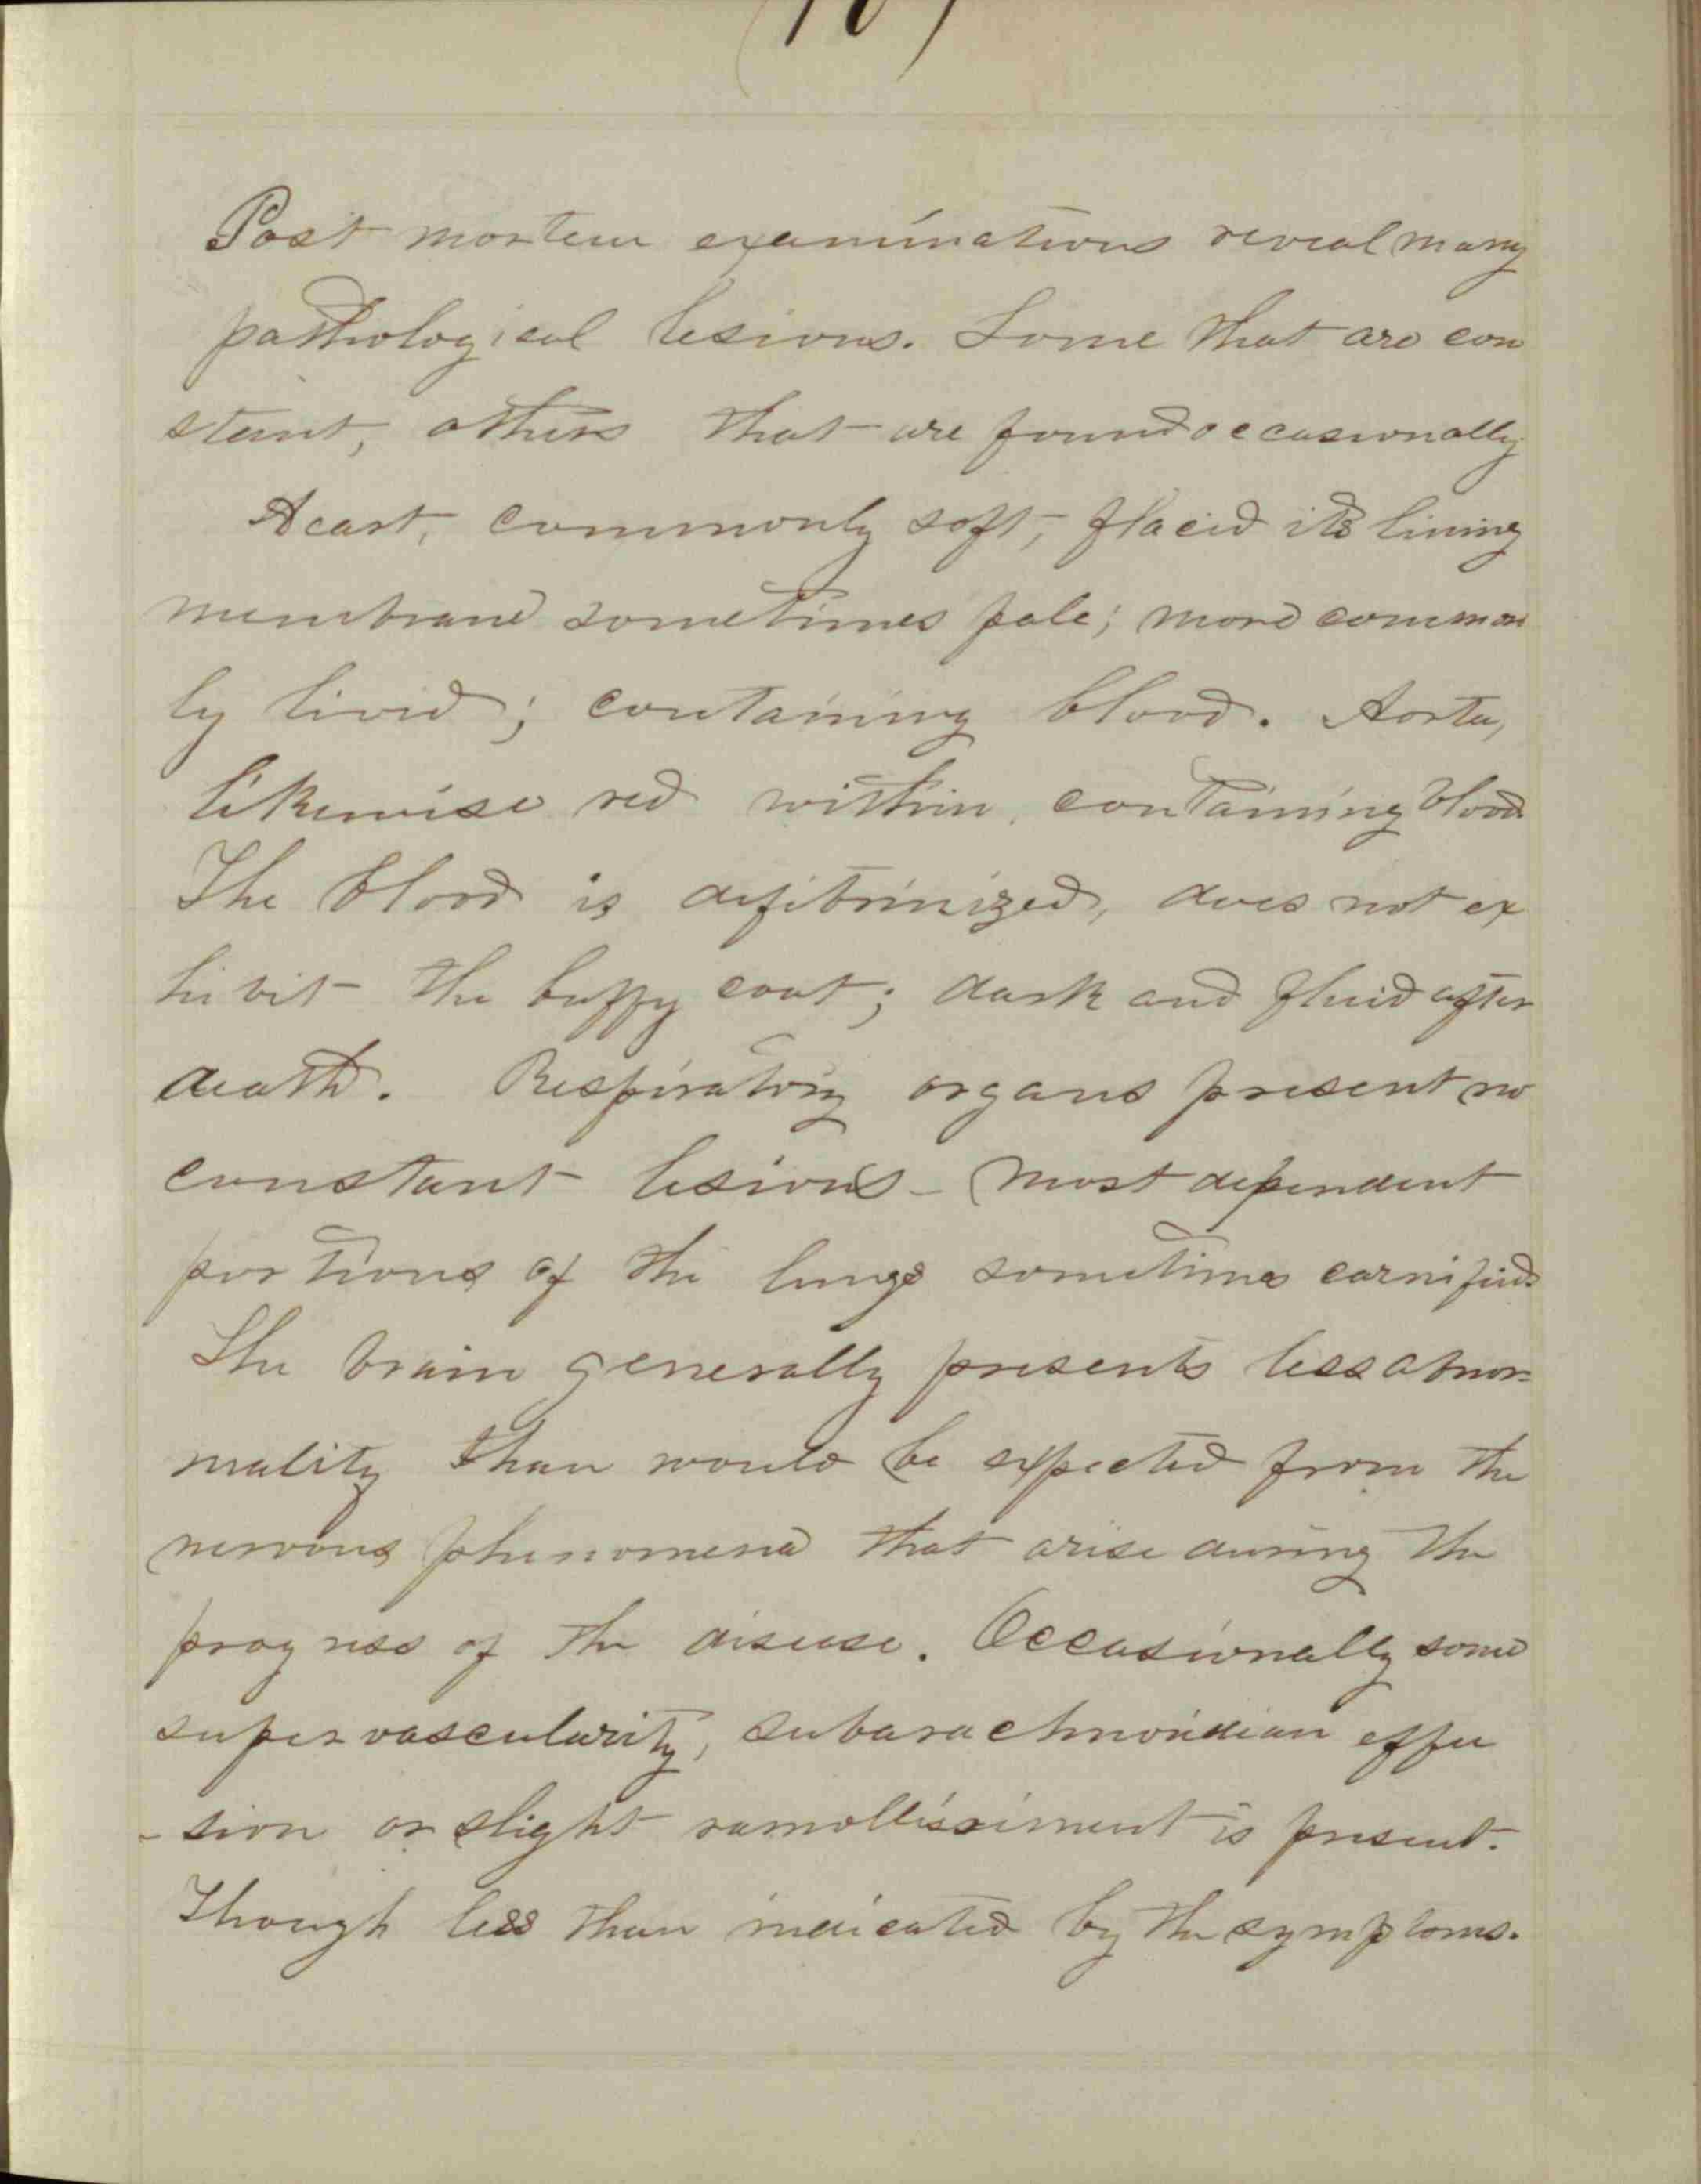 Post mortem examinations reveal many
pathological lesions. Some that are con
stant, others that are found occasionally
Heart, commonly soft, flacid its lining
membrane sometimes pale; more common
ly livid; containing blood. Aorta,
likewise red within, containing blood
The blood is defibrinized, does not ex
hibit the buffy coat; dark and fluid after
death. Respiratory organs present no
constant lesions - most dependent
portions of the lungs sometimes carnified
The brain generally presents less abnor=
mality than would be expected from the
nervous phenomena that arise during the
progress of the disease. Occasionally some
supervascularity, subarachnoidian effu
-sion or slight ramollissiment is present.
Though less than indicated by the symptoms.